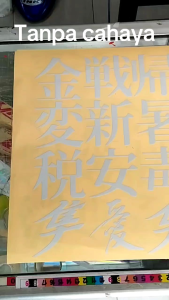 Tanpa cahaya
金戦帰
変新暑
税安
愛